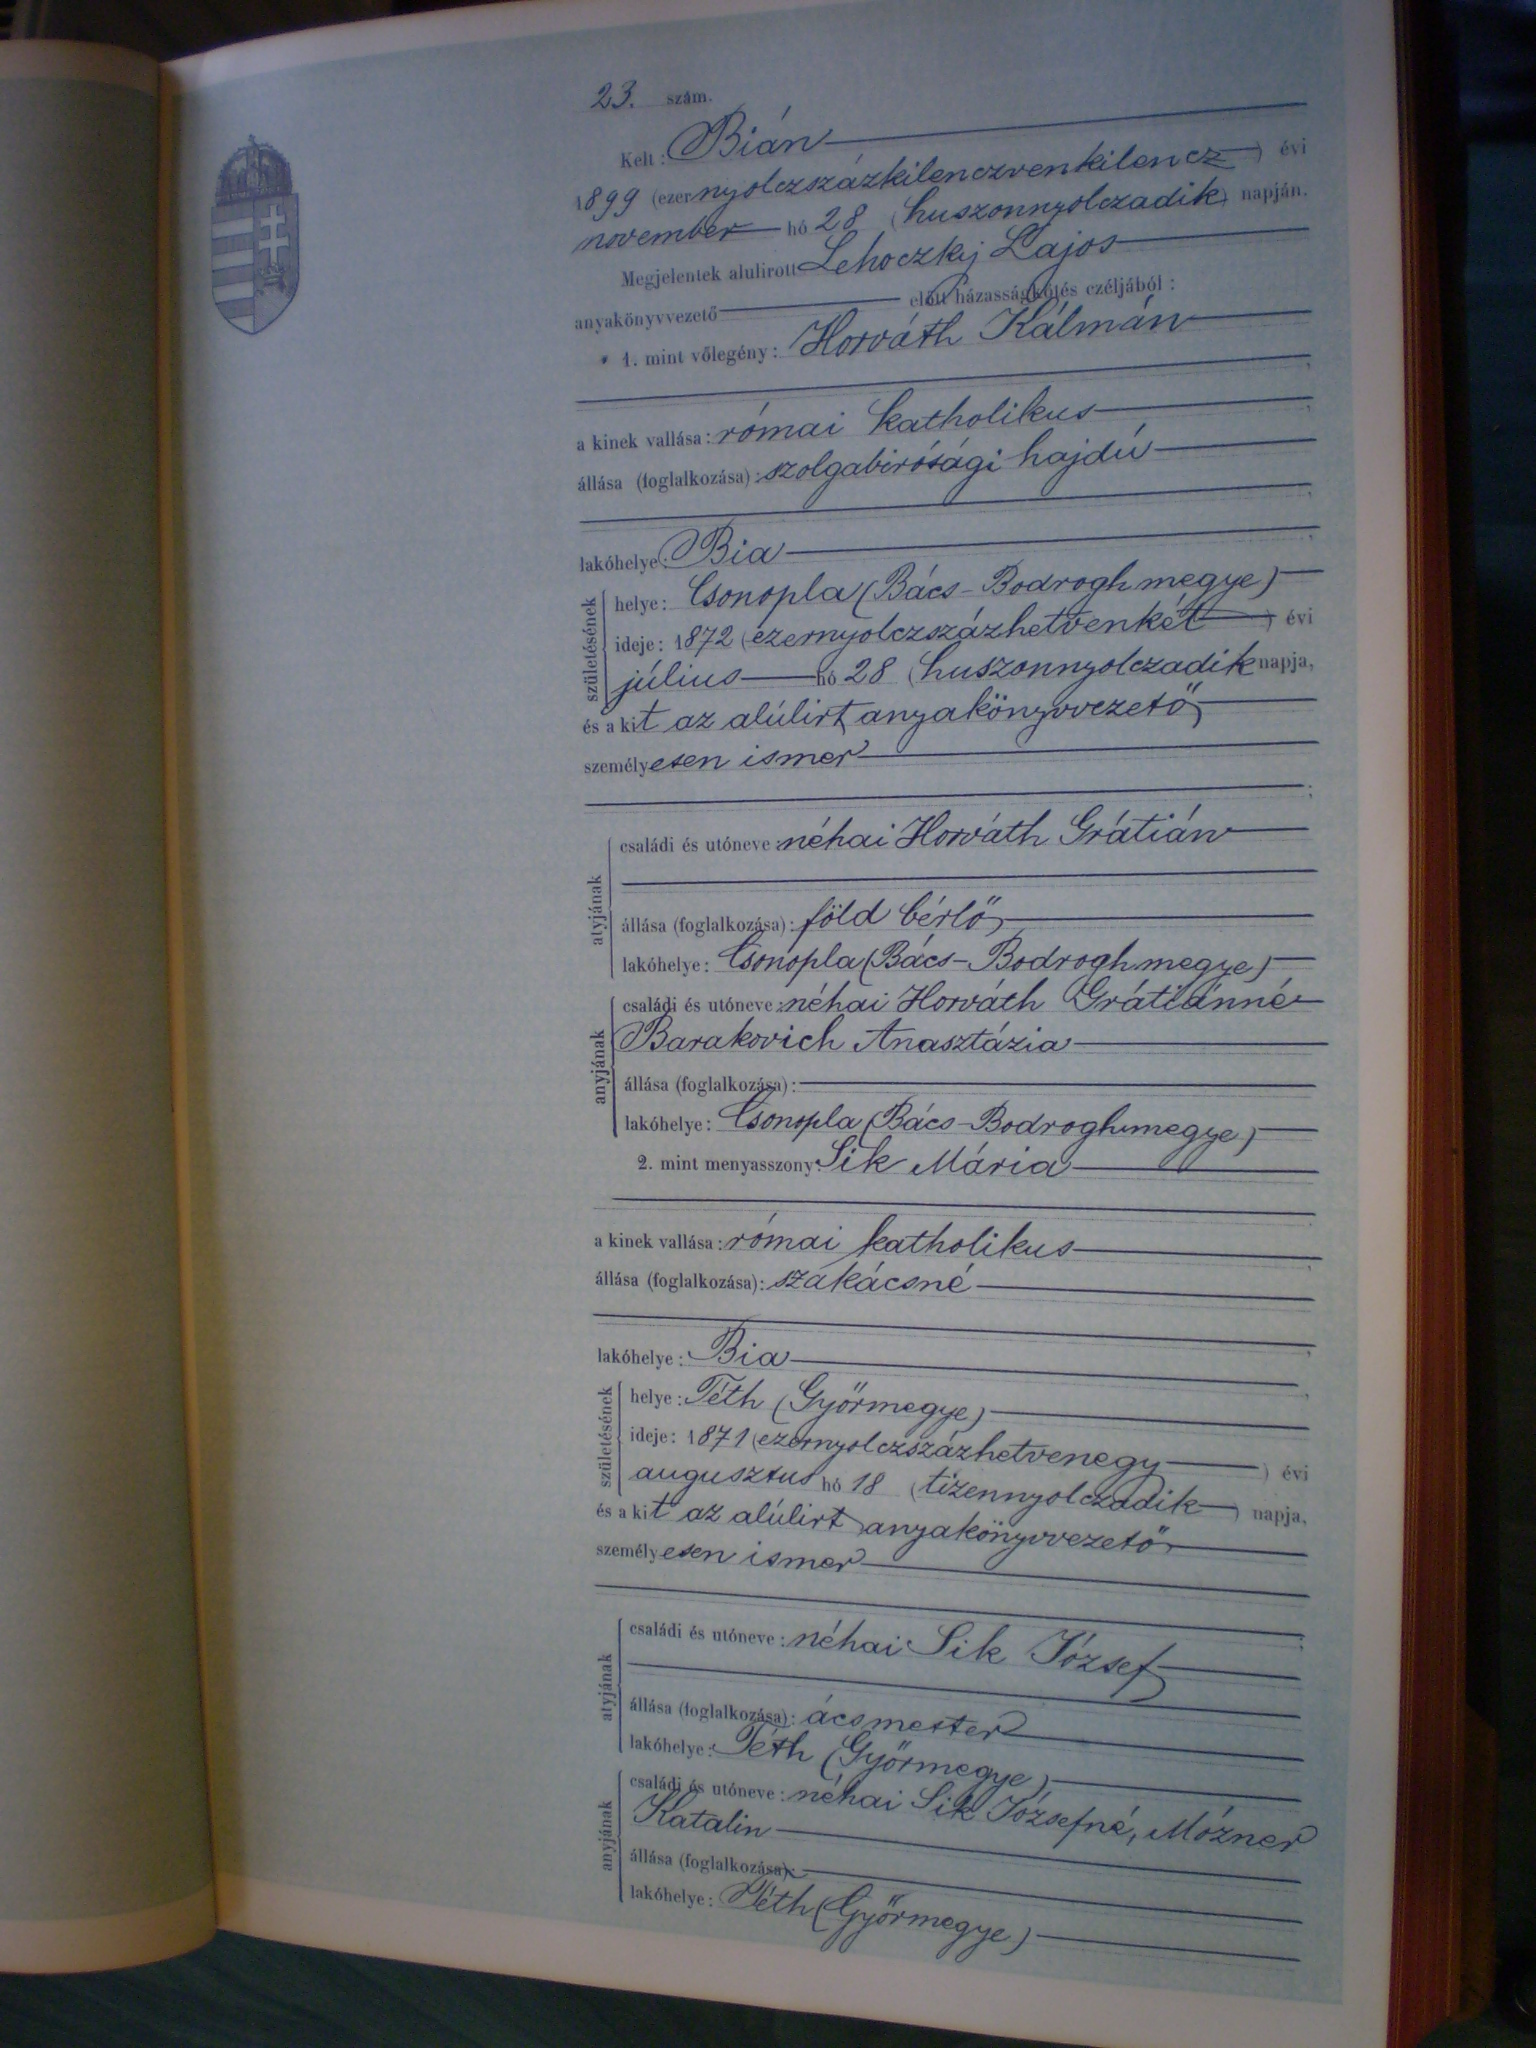 23. szám.
Kelt: Bián
1899 (ezernyolczszázkilenczvenkilencz) évi
november hó 28 (huszonnyolczadik) napján.
Megjelentek alulirott Lehoczky Lajos
anyakönyvvezető előtt házasságkötés czéljából:
1. mint vőlegény: Horváth Kálmán
a kinek vallása: római katholikus
állása (foglalkozása): szolgabirósági hajdú
lakóhelye: Bia
születésének
helye: Csonopla (Bács-Bodrogh megye)
ideje: 1872 (ezernyolczszázhetvenkét) évi
július hó 28 (huszonnyolczadik napja,
és a kit az alúlirt anyakönyvvezető
személyesen ismer
atyjának
családi és utóneve: néhai Horváth Grátián
állása (foglalkozása): föld bérlő
lakóhelye: Csonopla (Bács-Bodrogh megye)
anyjának
családi és utóneve: néhai Horváth Grátiánné
Barakovich Anasztázia
állása (foglalkozása):
lakóhelye: Csonopla (Bács-Bodroghmegye)
2. mint menyasszony: Sik Mária
a kinek vallása: római katholikus
állása (foglalkozása): szakácsné
lakóhelye: Bia
születésének
helye: Téth (Győrmegye)
ideje: 1871 (ezernyolczszázhetvenegy) évi
augusztus hó 18 (tizennyolczadik) napja,
és a kit az alúlirt anyakönyvvezető
személyesen ismer
atyjának
családi és utóneve: néhai Sik József
állása (foglalkozása): ácsmester
lakóhelye: Téth (Győrmegye)
anyjának
családi és utóneve: néhai Sik Józsefné, Mózner
Katalin
állása (foglalkozása):
lakóhelye: Téth (Győrmegye)